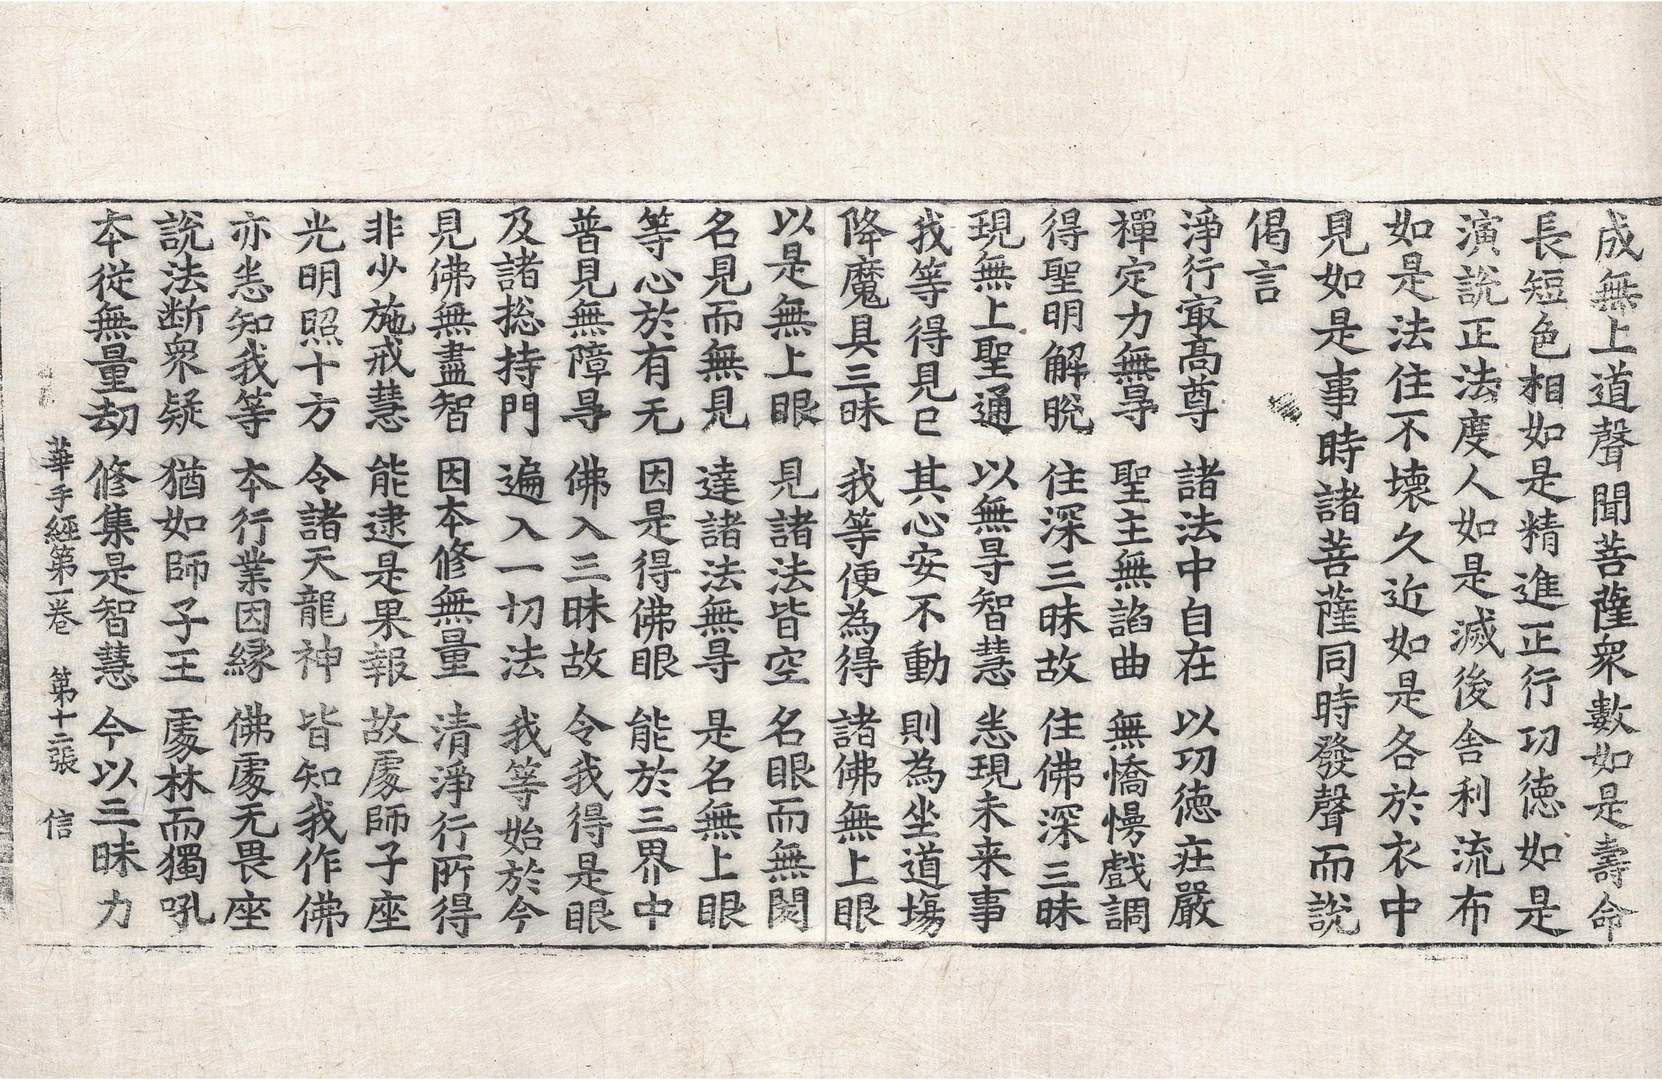 成無上道聲聞菩薩眾數如是壽命
長短色相如是精進正行功德如是
演說正法度人如是滅後舍利流布
如是法住不壞久近如是各於衣中
見如是事時諸菩薩同時發聲而說
偈言
淨行㝡髙尊　諸法中自在　以功德莊嚴
禪定力無㝵　聖主無諂曲　無憍慢戲調
得聖明解脫　住深三昧故　住佛深三昧
現無上聖通　以無㝵智慧　悉現未来事
我等得見已　其心安不動　則為坐道塲
降魔具三昧　我等便為得　諸佛無上眼
以是無上眼　見諸法皆空　名眼而無閡
名見而無見　達諸法無㝵　是名無上眼
等心於有无　因是得佛眼　能於三界中
普見無障㝵　佛入三昧故　令我得是眼
及諸捴持門　遍入一切法　我等始於今
見佛無盡智　因本修無量　清淨行所得
非少施戒慧　能逮是果報　故處師子座
光明照十方　令諸天龍神　皆知我作佛
亦悉知我等　本行業因縁　佛處无畏座
說法断眾疑　猶如師子王　處林而獨吼
本從無量劫　修集是智慧　今以三昧力
華手經第一卷　第十二張　信